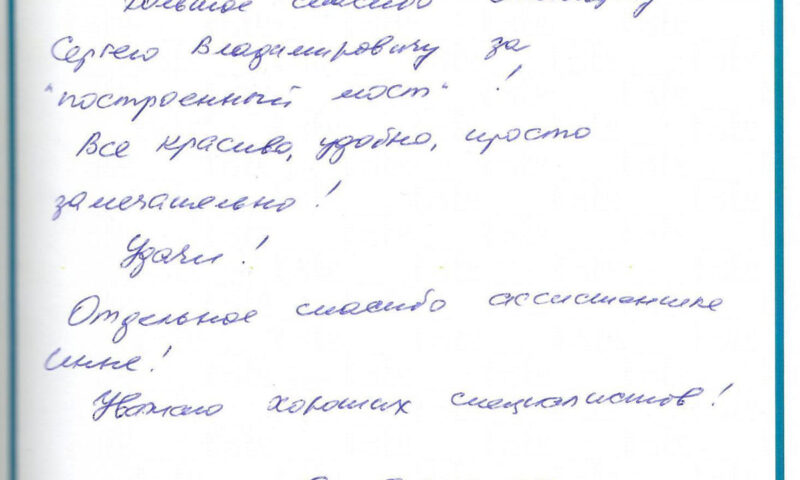 Большое спасибо
Сергею Владимировичу за
"построенный мост"!
Все красиво, удобно, просто
замечательно!
Удачи!
Отдельное спасибо ассистентке
Инне!
Уважаю хороших специалистов!